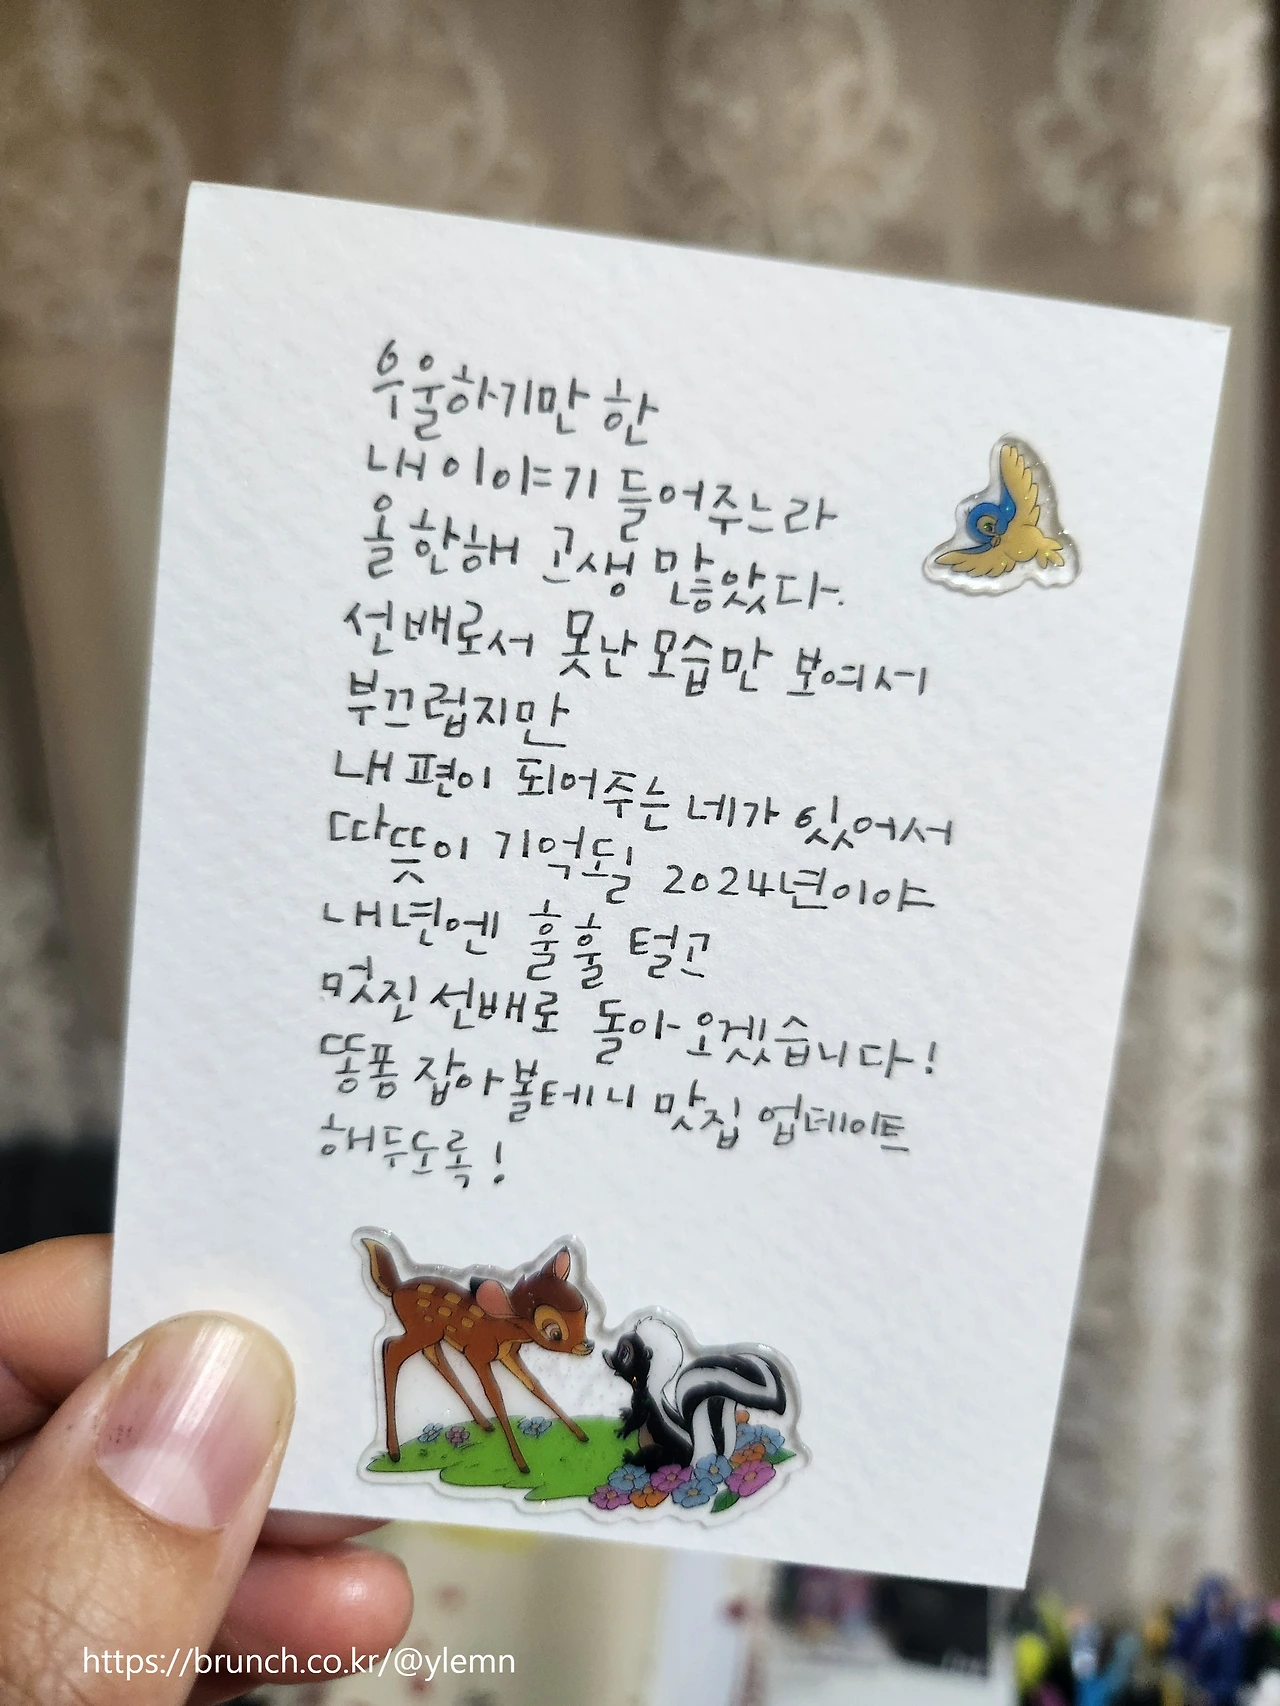 우울하기만 한
내 이야기 들어주느라
올 한해 고생 많았다.
선배로서 못난 모습만 보여서
부끄럽지만
내 편이 되어주는 네가 있어서
따뜻이 기억될 2024년이야
내년엔 훌훌 털고
멋진 선배로 돌아오겠습니다!
똥폼 잡아볼테니 맛집 업데이트
해두도록!
https://brunch.co.kr/@ylemn